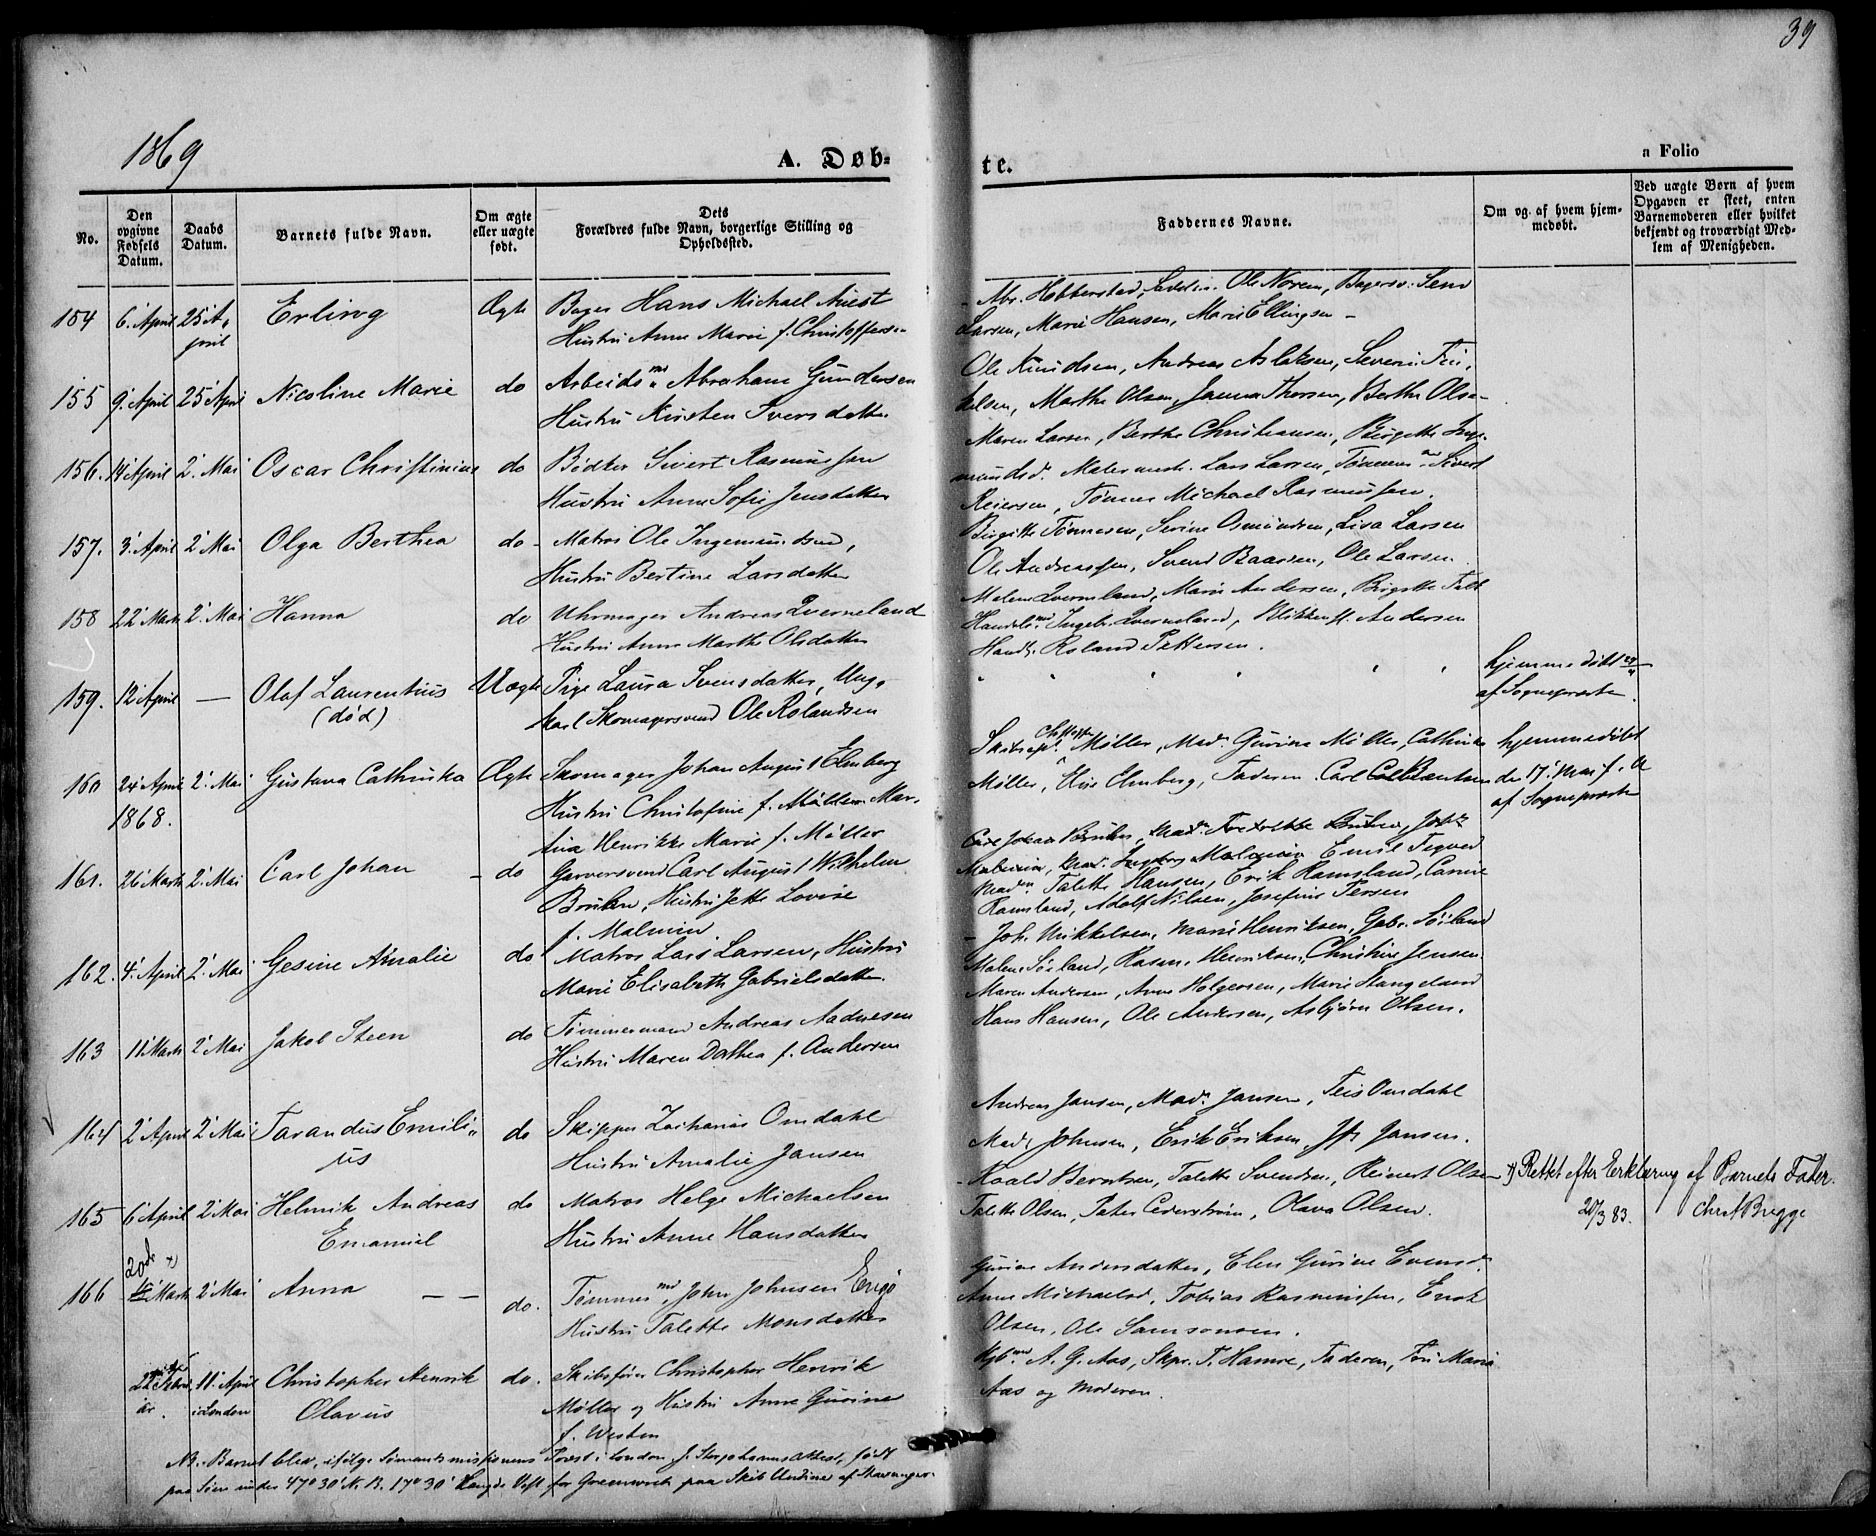 39
1869
A. Døb-
te.
a Folio
No.
Den opgivne Fødsels Datum.
Daabs Datum.
Barnets fulde Navn.
Om ægte eller uægte født.
Dets Forældres fulde Navn, borgerlige Stilling og Opholdssted.
Faddernes Navne.
Om og af hvem hjemmedøbt.
Ved uægte Børn af hvem Opgaven er skeet, enten Barnemoderen eller hvilket bekjendt og troværdigt Medlem af Menigheden.
154 6' April 25 A, Erling Ægte Bager Hans Michael Auest
pril Hustru Anne Marie f. Christoffersen
Ole Noren, Bagersv.
Larsen, Marie Hansen, Marie Ellingsen -
155 9' April 25' April Nicoline Marie do Arbeidsmd Abraham Gundersen
Hustru Kirsten Iversdatter
Ole Knudsen, Andreas Aslaksen, Severin
Marthe Olsen, Janna Thorsen, Berthe Olsen
156. 14' April 2' Mai Oscar Christinius do Bødker Sivert Rasmussen
Hustru Anne Sofie Jensdatter
Maren Larsen, Berthe Christiansen, Birgitte Inge-
mundsd. Malermest. Lars Larsen, Tømmermd Sivert
Reiersen, Tømmer Michael Rasmussen.
157. 3' April 2' Mai Olga Berthea do - Matros Ole Ingemundsen,
Hustru Bertine Larsdatter
Birgitte Tønnesen, Serine Osmundsen, Lisa Larsen
Ole Andreassen, Svend Baardsen, Ole Larsen
158 22' Marts 2' Mai Hanna do Uhrmager Andreas Qverneland
Hustru Anne Marthe Olsdatter
Malene Qverneland, Marie Andersen, Birgitte
Handelsmd Ingebr. Qverneland, Andersen
Roland Pettersen.
159. 12' April — Olaf Laurentius Uægte Pige Laura Svensdatter, Ung-
(død) karl Skomagersvend Ole Rolandsen
hjemmedøbt
af Sognepresten.
160 24' April 2' Mai Gustava Cathinka Ægte Skomager Johan August Elmberg
1868. Hustru Christofine f. Møller
Møller, Mad. Gurine Møller, Cathinka
Møller, Elise Elmberg, Faderen Carl
hjemmedøbt
den 17' Mai f. A
af Sognepresten
Henrikke Marie f. Møller
161. 26' Marts 2' Mai Carl Johan - do Garversvend Carl August Wilhelm
Bruhn, Hustru Jette Lovise
f. Malmin.
Carl Johan Bruhn, Mad. Fredrikke Bruhn,
Emil Tegved
Madm Talette Hansen, Erik Ramsland, Carine
Ramsland, Adolf Nilsen, Josefine Persen
162. 4' April 2' Mai Gesine Amalie do Matros Lars Larsen, Hustru
Marie Elisabeth Gabrielsdatter.
- Joh. Mikkelsen, Marie Henriksen, Gabr. Søiland
Malene Søiland, Rasm. Henriksen, Christine Jensen
163 11' Marts 2' Mai Jakob Steen do Tømmermand Andreas Aadnesen
Hustru Maren Dorthea f. Andersen
Maren Andersen, Anne Holgersen, Marie Haugeland
Hans Hansen, Ole Andersen, Asbjørn Olsen.
164 2' April 2' Mai Tarandus Emili- do Skipper Zacharias Omdahl
us Hustru Amalie Jansen
Andreas Jansen, Mad. Jansen, Teis Omdahl
Mad. Johnsen, Erik Eriksen, Jansen.
165 6' April 2' Mai Helmik Andreas do Matros Helge Michaelsen
Emanuel Hustru Anne Hansdatter
Berntsen, Talette Svendsen, Reinert Olsen
Talette Olsen, Peter Cederstrøm, Olava Olsen.
x) Rettet efter Erklæring af Barnets Fader.
20/3 83. Chr. Brugge
20de x
166 Marts 2' Mai Anna — — do. Tømmermd John Johnsen Engø
Hustru Talette Monsdatter
Gurine Andersdatter, Elen Gurine Evensd.
Anne Michaelsd, Tobias Rasmussen, Enok
Olsen, Ole Samsonsen.
22' Febr. 11' April Christopher Henrik do. Skibsfører Christopher Henrik
år. i London Olavus Møller og Hustru Anne Gurine
f. Westen
A. G. Aas, Skpr. T. Hamre, Faderen, Marie
Aas og Moderen.
NB. Barnet blev, ifølge Sømandsmissionens Præst i London J. Storjohanns Attest, født
paa Søen under 47° 30' N. B. 17° 30' Længde Vest for Greenwich paa Skib Undine af Stavanger.